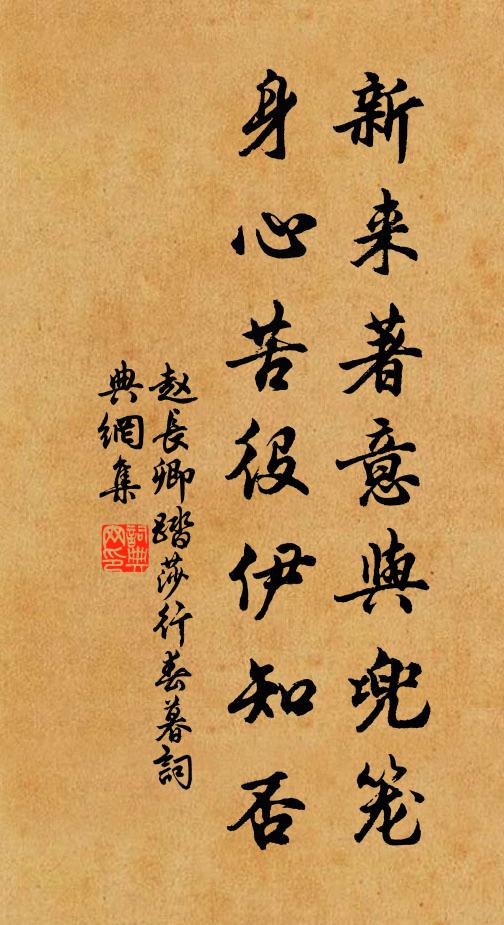 新来著意與兜笼
身心苦役伊知否
赵長卿踏莎行春暮詞
典網集
詞典网印